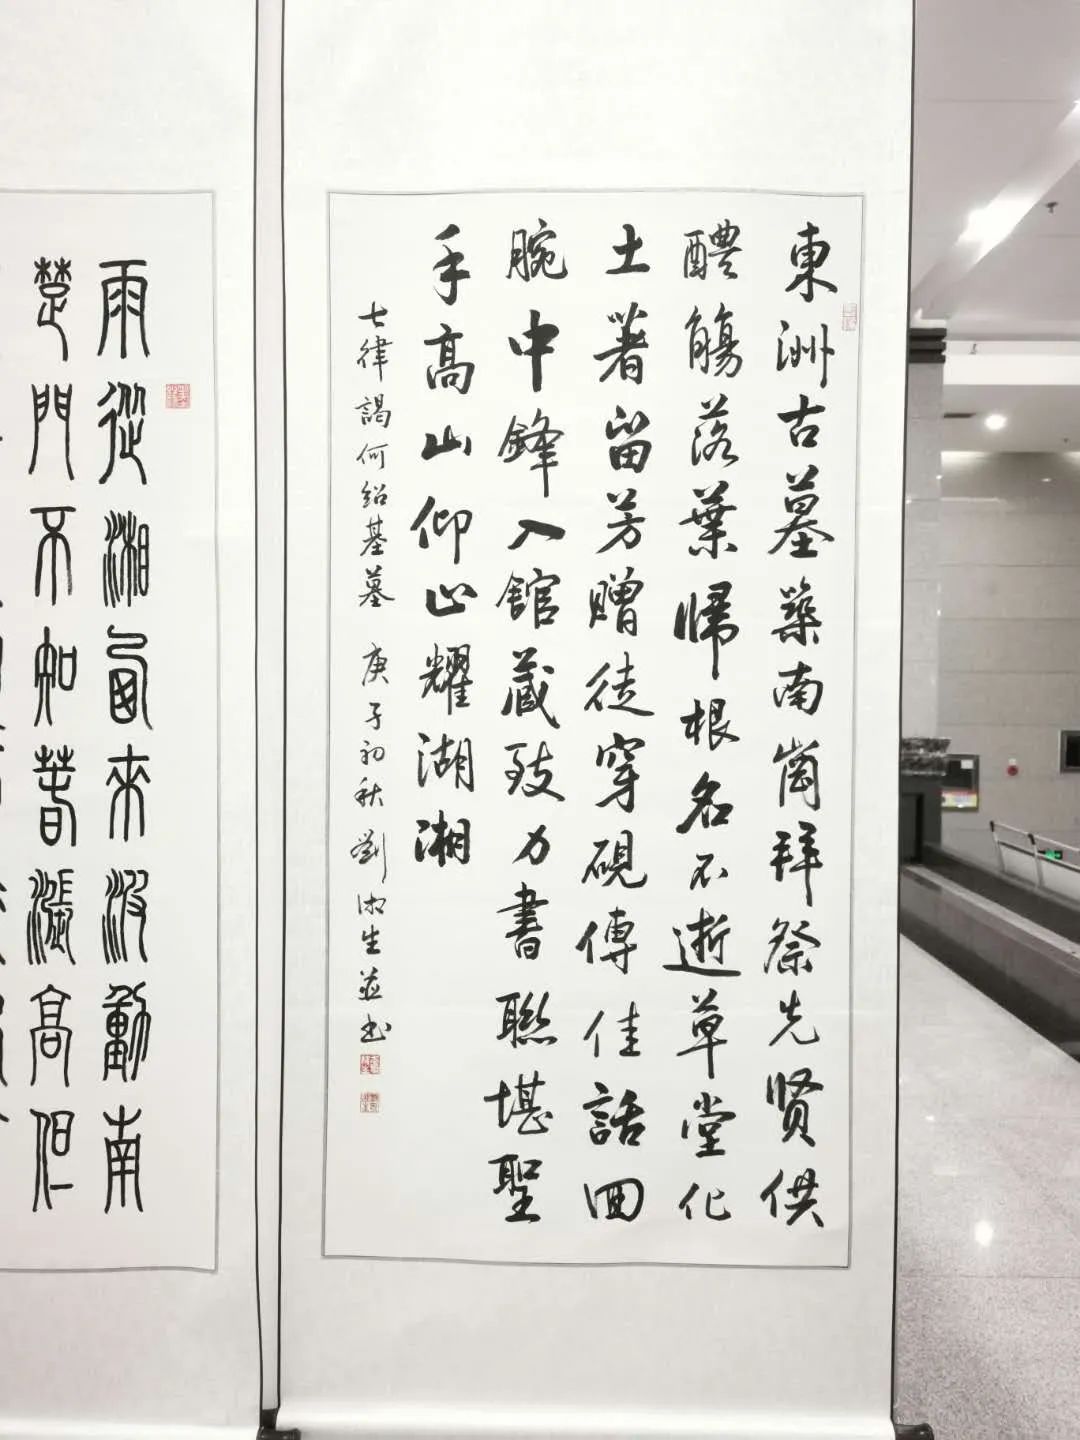 東洲古墓築南崗拜祭先贤供
醴觴落葉歸根名不逝草堂化
土著留芳贈徒穿硯傳佳話回
腕中鋒入館藏致力書聯堪聖
手高山仰止耀湖湘
七律謁何紹基墓 庚子初秋 劉湘生並书
雨從湘西來波動南
楚門不知春漲高但